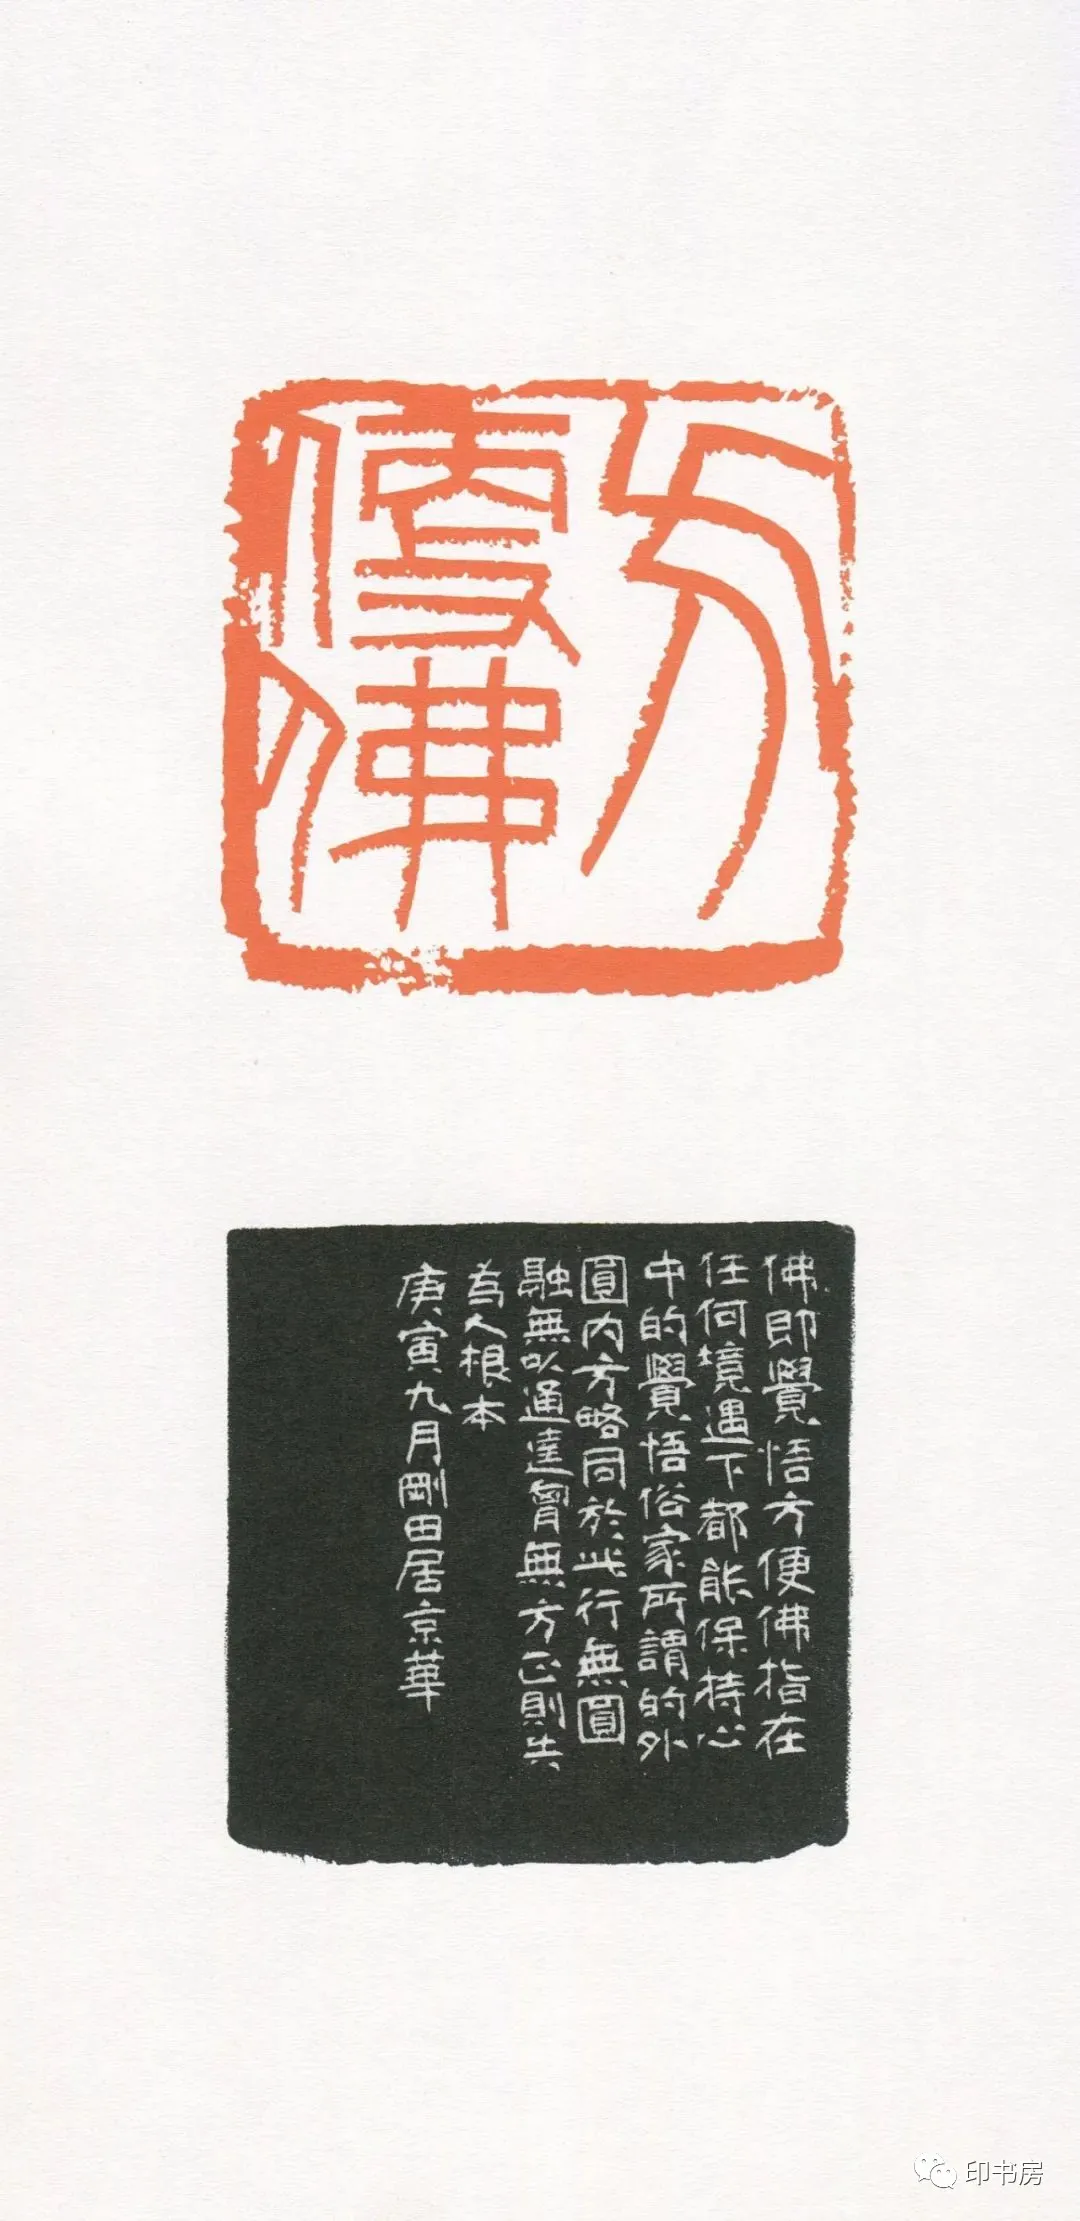 方便佛
佛即覺悟方便佛指在
任何境遇下都能保持心
中的覺悟俗家所謂的外
圓内方略同於此行無圓
融無以通達智無方正則失
為人根本
庚寅九月剛田居京華
印书房